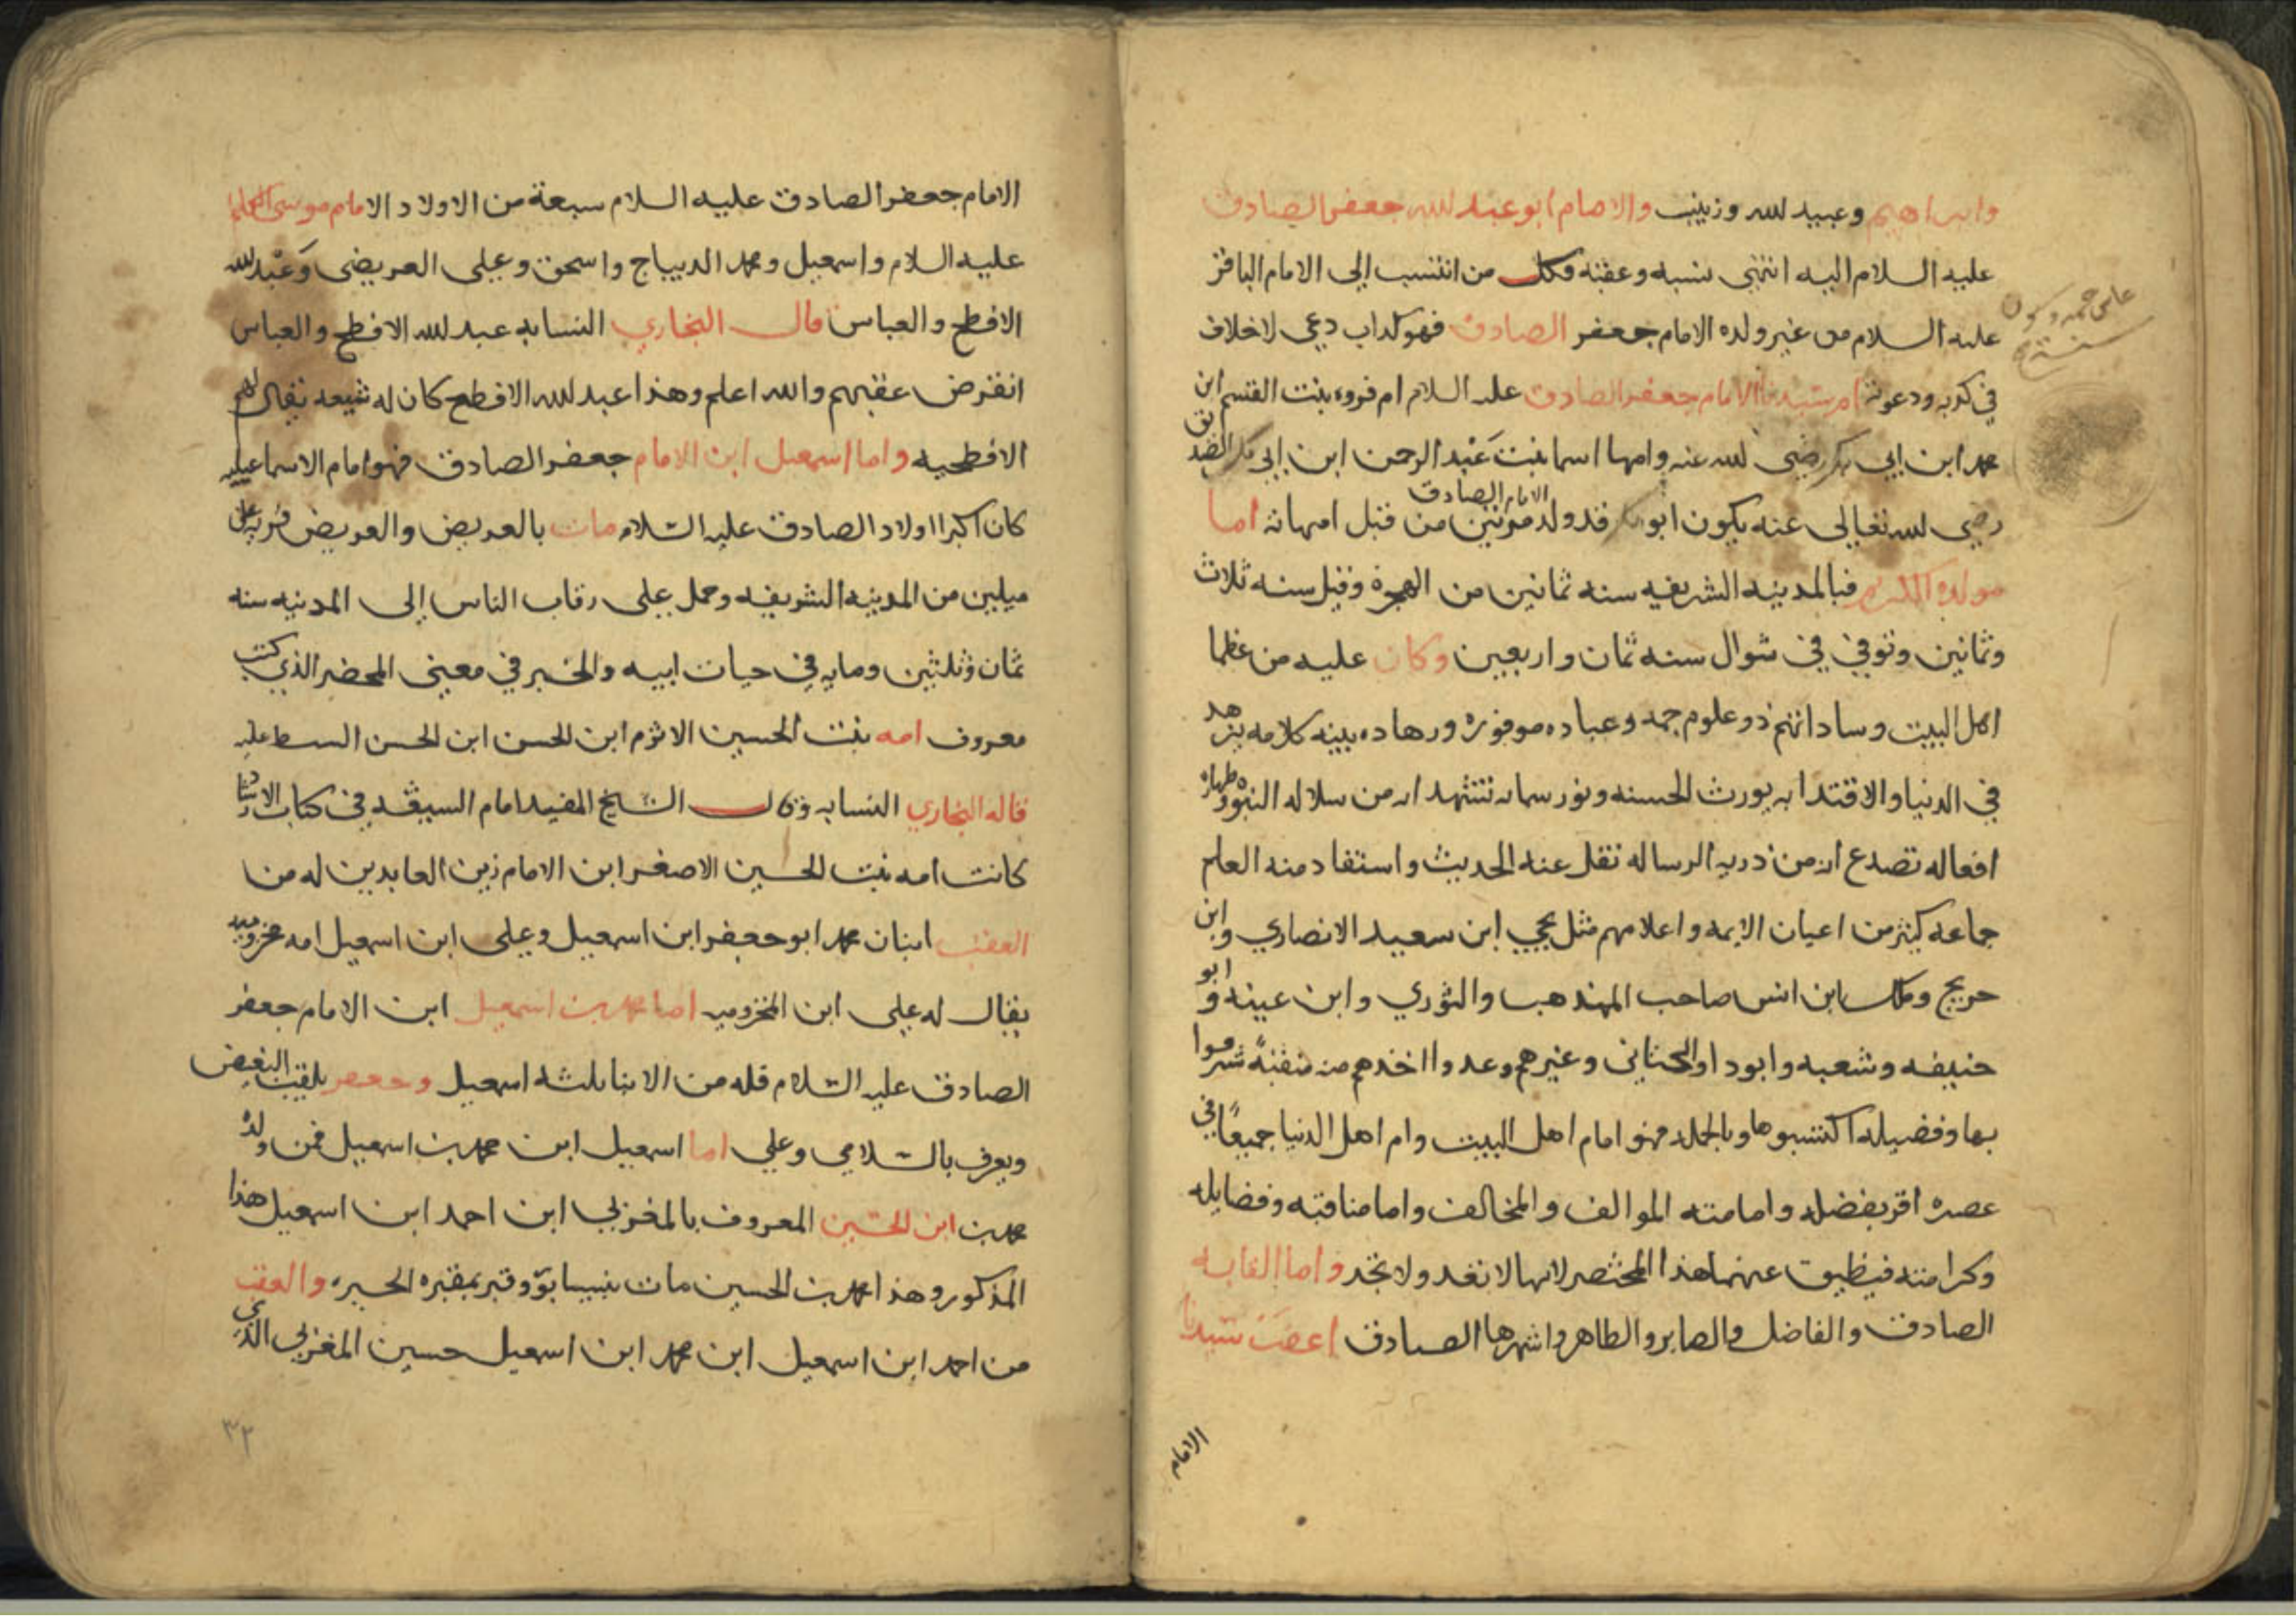 وابراهيم وعبيد لله وزينب والامام ابوعبد لله جعفر الصادق
عليه السلام اليه انتهى نسبه وعقبه فكل من انتسب الى الامام الباقر
عليه السلام من غير ولده الامام جعفر الصادق فهو كداب دعي لاخلاف
في كدبه ودعوته ام سيدنا الامام جعفر الصادق عليه السلام ام فروه بنت القسم ابن
محمد ابن ابي بكر رضي لله عنه وامها اسما بنت عبد الرحمن ابن ابي بكر
رضي لله تعالى عنه يكون ابو بكر قد ولد الامام الصادق مرتين من قبل امهاته اما
مولده المكرم فبالمدينه الشريفه سنه ثمانين من الهجرة وقيل سنه ثلاث
وثمانين وتوفي في شوال سنه ثمان واربعين وكان عليه من عظما
اهل البيت وساداتهم ذو علوم جمه وعباده موفوره وزهاده بينه كلامه يزهد
في الدنيا والاقتدا به يورث الحسنه ونور سماته تشهد انه من سلاله النبوة وطهارة
افعاله تصدع انه من ذريه الرساله نقل عنه الحديث واستفاد منه العلم
جماعه كثير من اعيان الايمه واعلامهم مثل يحيى ابن سعيد الانصاري وابن
جريج ومالك ابن انس صاحب المذهب والثوري وابن عيينه وابو
حنيفه وشعبه وابو وغيرهم وعدوا اخذهم منه منقبةً شرفوا
بها وفضيله اكتسبوها وبالجمله فهو امام اهل البيت وام اهل الدنيا جميعًا في
عصره اقر بفضله وامامته الموالف والمخالف واما مناقبه وفضايله
وكرامته فيضيق عنهما هذا المختصر لانها لا تعد ولا تحد واما القابه
الصادق والفاضل والصابر والطاهر واشهرها الصادق اعقب سيدنا
الامام
الامام جعفر الصادق عليه السلام سبعة من الاولاد الامام موسى الكاظم
عليه السلام واسمعيل ومحمد الديباج واسحق وعلى العريضى وعبد لله
الافطح والعباس قال البخاري النسابه عبد لله الافطح والعباس
انقرض عقبهم والله اعلم وهذا عبد لله الافطح كان له شيعه يقال لهم
الافطحيه واما اسمعيل ابن الامام جعفر الصادق فهو امام الاسماعيليه
كان اكبر اولاد الصادق عليه السلام مات بالعريض والعريض قريه على
ميلين من المدينه الشريفه وحمل على رقاب الناس الى المدينه سنه
ثمان وثلثين ومايه في حيات ابيه والخبر في معنى المحضر الذي كتب
معروف امه بنت الحسين الاثرم ابن الحسن ابن الحسن السبط عليه
قاله البخاري النسابه وقال الشيخ المفيد امام السيقه في كتاب الارشاد
كانت امه بنت الحسين الاصغر ابن الامام زين العابدين له من
العقب ابنان محمد ابو جعفر ابن اسمعيل وعلى ابن اسمعيل امه مخزوميه
يقال له على ابن المخزوميه اما محمد بن اسمعيل ابن الامام جعفر
الصادق عليه السلام فله من الابنا ثلثه اسمعيل وجعفر يلقب البغيض
ويعرف بالسلامي وعلي اما اسمعيل ابن محمد بن اسمعيل فمن ولده
محمد بن ابن الحسين المعروف بالمغربي ابن احمد ابن اسمعيل هذا
المذكور وهذا محمد بن الحسين مات بنيسابور وقبر بمقبره الحيره والعقب
من احمد ابن اسمعيل ابن محمد ابن اسمعيل حسين المغربي الذي
٣٢